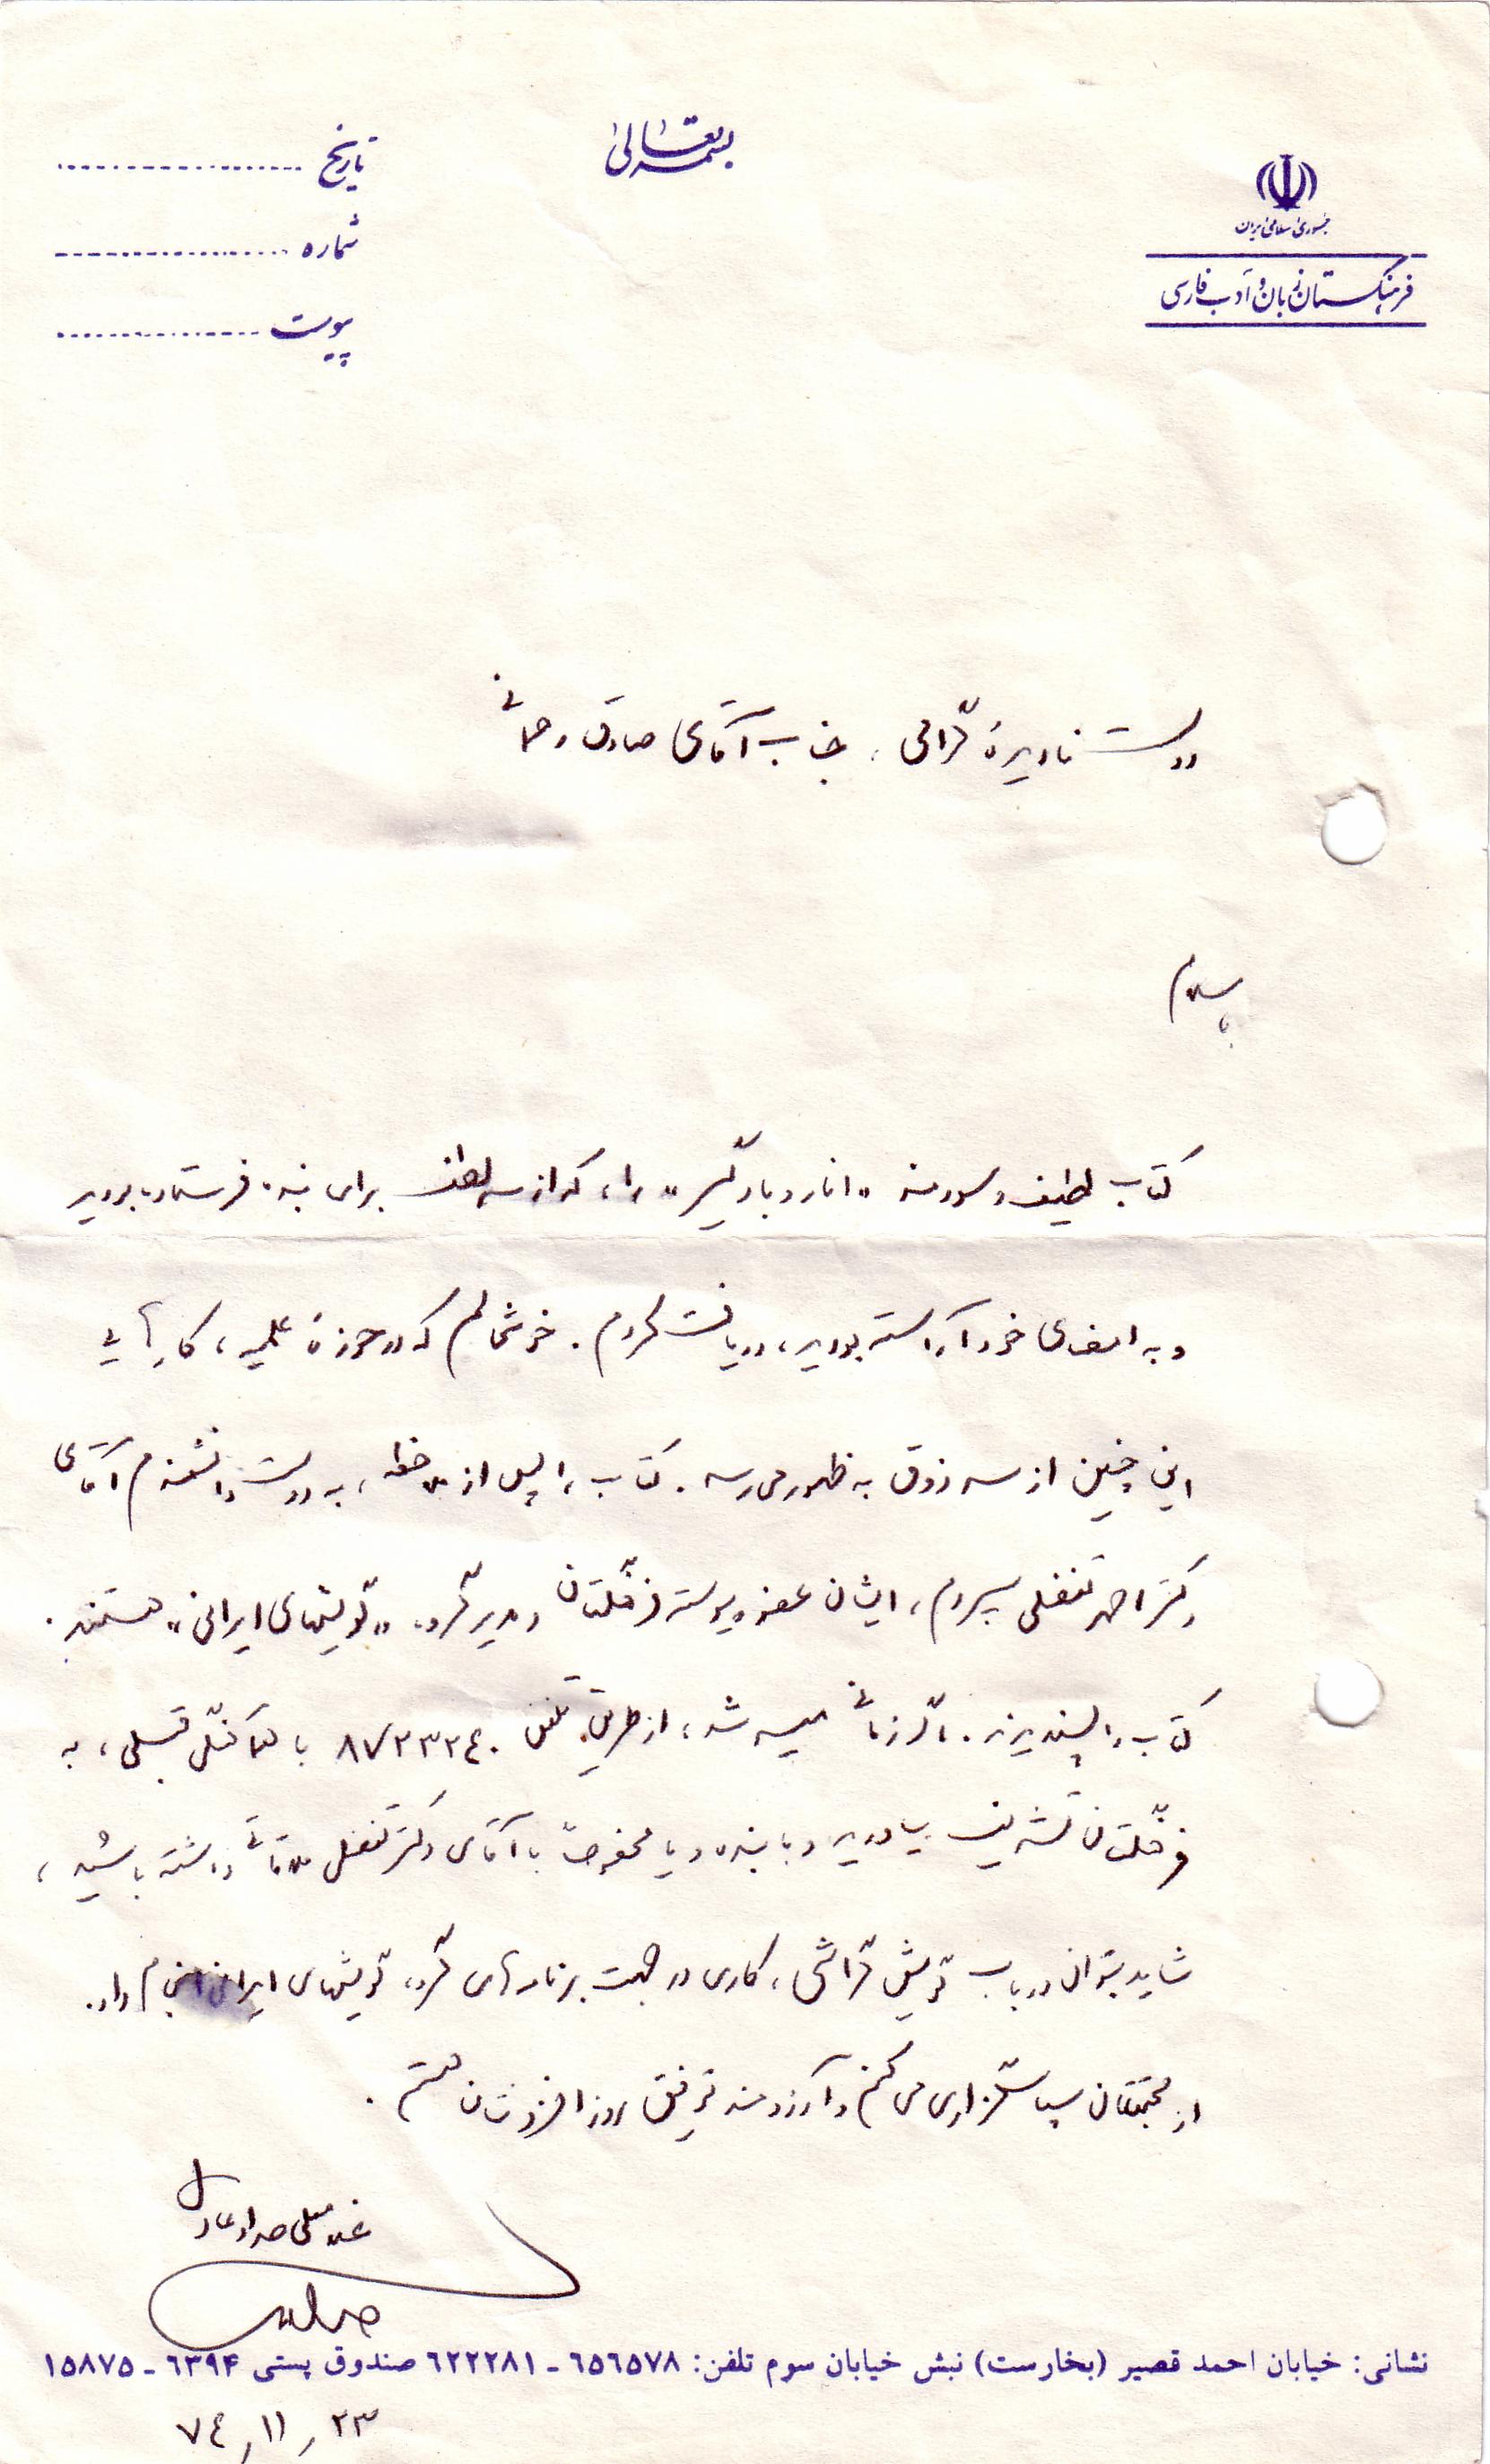 بسمه تعالی
جمهوری اسلامی ایران
فرهنگستان زبان و ادب فارسی
تاریخ ....................
شماره ....................
پیوست ....................
دوست نادیدهٔ گرامی، جناب آقای صادق رحمانی
با سلام
کتاب لطیف و سودمند «انار و بادگیر» را، که از سر لطف برای بنده فرستاده بودید
و به امضای خود آراسته بودید، دریافت کردم. خوشحالم که در حوزهٔ علمیه، کارهایی
این چنین از سر ذوق به ظهور می‌رسد. کتاب را پس از ملاحظه، به دوست دانشمندم آقای
دکتر احمد تفضلی سپردم، ایشان عضو پیوسته فرهنگستان و مدیر گروه «گویشهای ایرانی» هستند.
کتاب را پسندیدند. اگر زمانی میسر شد، از طریق تلفن ۸۷۲۳۲۴۰ با هماهنگی قبلی، به
فرهنگستان تشریف بیاورید و با بنده و یا مخصوصاً با آقای دکتر تفضلی ملاقاتی داشته باشید،
شاید بتوان در باب گویش گراشی، کاری در جهت برنامه‌های گروه گویشهای ایرانی انجام داد.
از محبتتان سپاسگزاری می‌کنم و آرزومند توفیق روزافزونتان هستم.
غلامعلی حداد عادل
نشانی: خیابان احمد قصیر (بخارست) نبش خیابان سوم تلفن: ۶۵۶۵۷۸ - ۶۲۲۲۸۱ صندوق پستی ۶۳۹۴ - ۱۵۸۷۵
۷۴٫۱۱٫۲۳